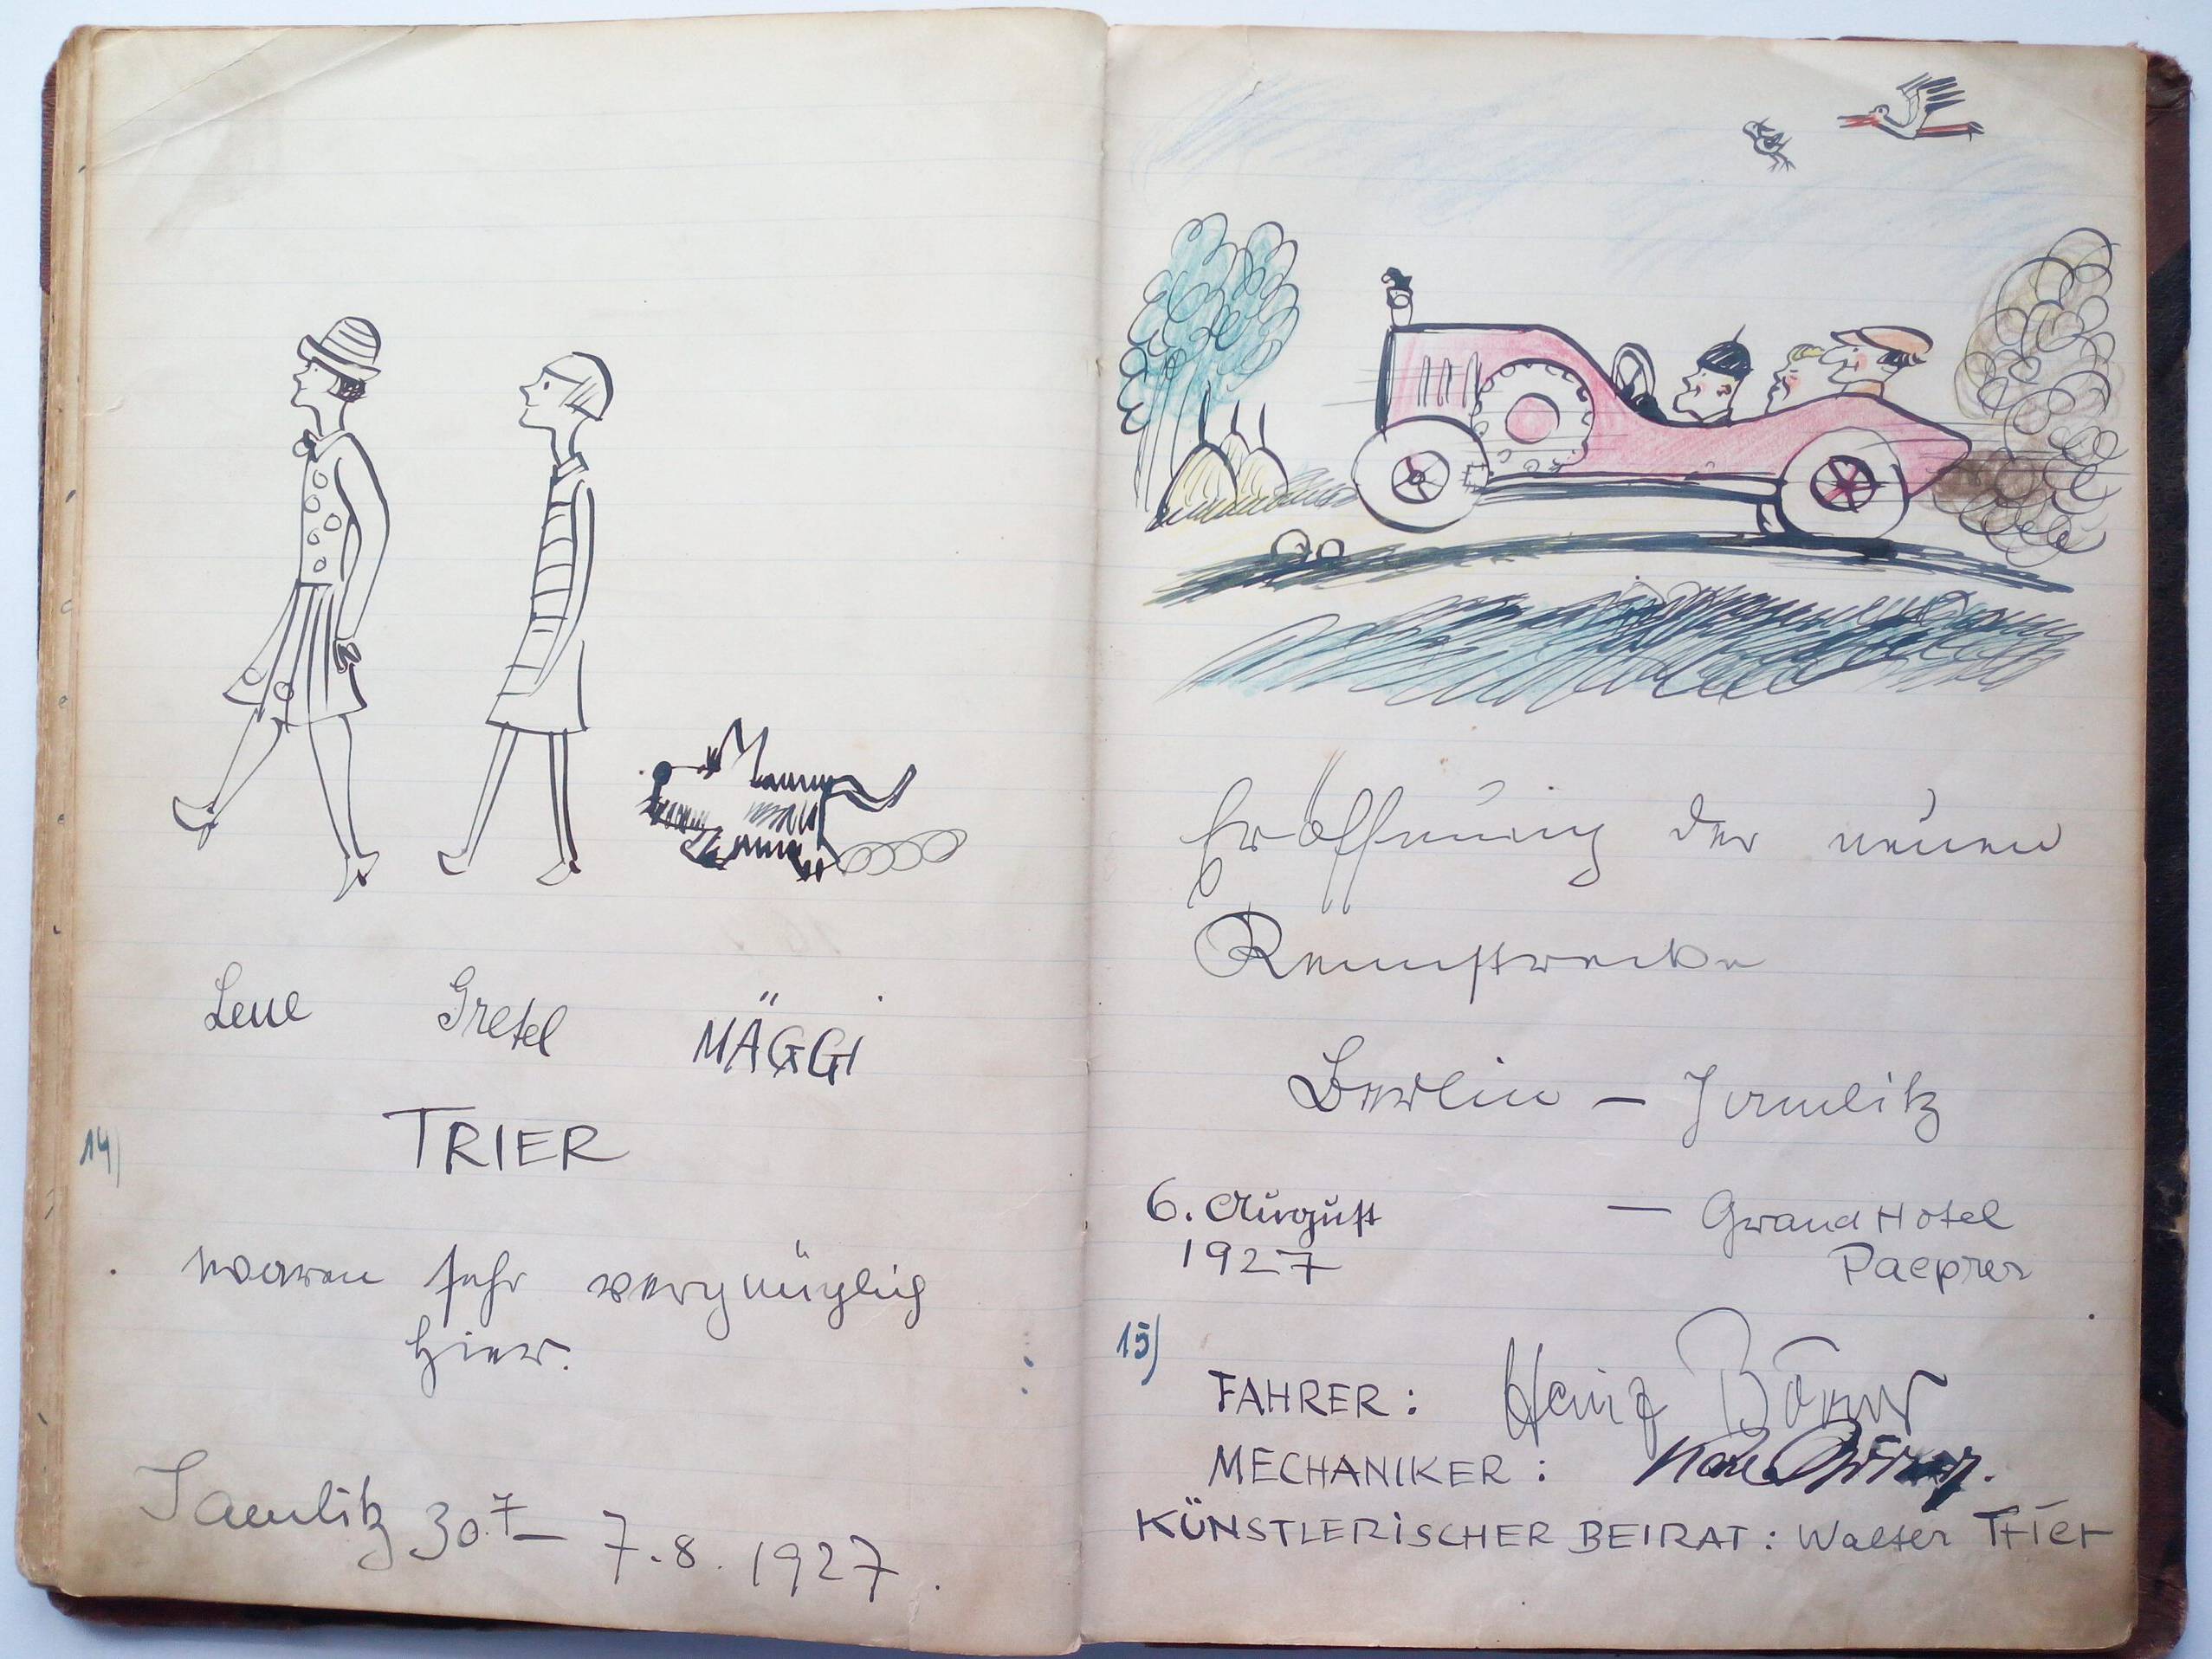 Lene Gretel MÄGGI
14) TRIER
waren sehr vergnüglich
hier.
Jamlitz 30.7 – 7.8. 1927.
Eröffnung der neuen
Rennstrecke
Berlin – Jamlitz
6. August – Grand Hotel
1927 Paeprer
15)
FAHRER: Heinz
MECHANIKER:
KÜNSTLERISCHER BEIRAT: Walter Trier